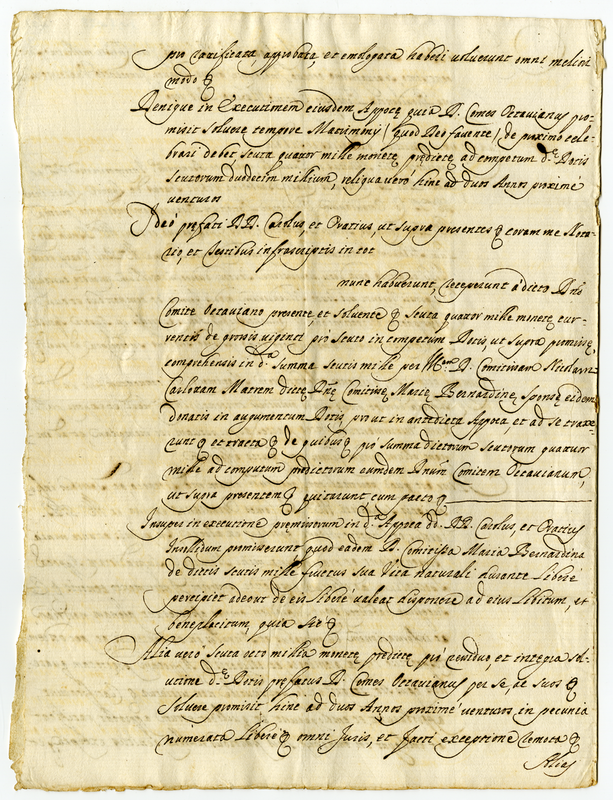 pro ratificata approbata, et emologata haberi voluerunt omni meliori
modo &
Denique in executionem eiusdem Appocę quia D. Comes Octavianus pro-
misit solvere tempore Matrimonij (quod Deo favente) de proximo cele-
brari debet scuta quatuor mille monetę prędictę ad computum d.ę Dotis
scutorum duodecim millium, reliqua verò hinc ad duos Annos proximè
venturos
Ideò prefati DD. Carolus, et Oratius, ut supra presentes & coram me Nota-
rio, et testibus infrascriptis in tot
nunc habuerunt, receperunt à dicto Dno
Comite Octaviano presente, et solvente & scuta quatuor mille monetę cur-
rentis de paolis viginti pro scuto in computum Dotis, ut supra promissę,
comprehensis in d.a summa scutis mille per D. Comitissam
Carlottam Matrem dictę Dnę Comitissę Marię Bernardinę sponsę eidem
donatis in augumentum Dotis, prout in antedicta Appoca et ad se traxe-
runt & et tracta & de quibus & pro summa dictorum scutorum quatuor
mille ad computum predictorum eumdem Dnum Comitem Octavianum,
ut supra presentem & quietarunt cum pacto &
Insuper in executione premissorum in d.a Appoca dd. DD. Carolus, et Oratius
Insolidum promiserunt quod eadem D. Comitissa Maria Bernardina
de dictis scutis mille fructus sua vita naturali durante liberè
percipiet adeout de eis liberè valeat disponere ad eius libitum, et
beneplacitum, quia sic &
Alia verò scuta octo millia monetę prędictę pro residuo, et integra solu-
tione d.ę Dotis pręfatus D. Comes Octavianus per se, ac suos &
solvere promisit hinc ad duos Annos proximè venturos in pecunia
numerata liberè & omni Juris, et facti exceptione remota &
Alias